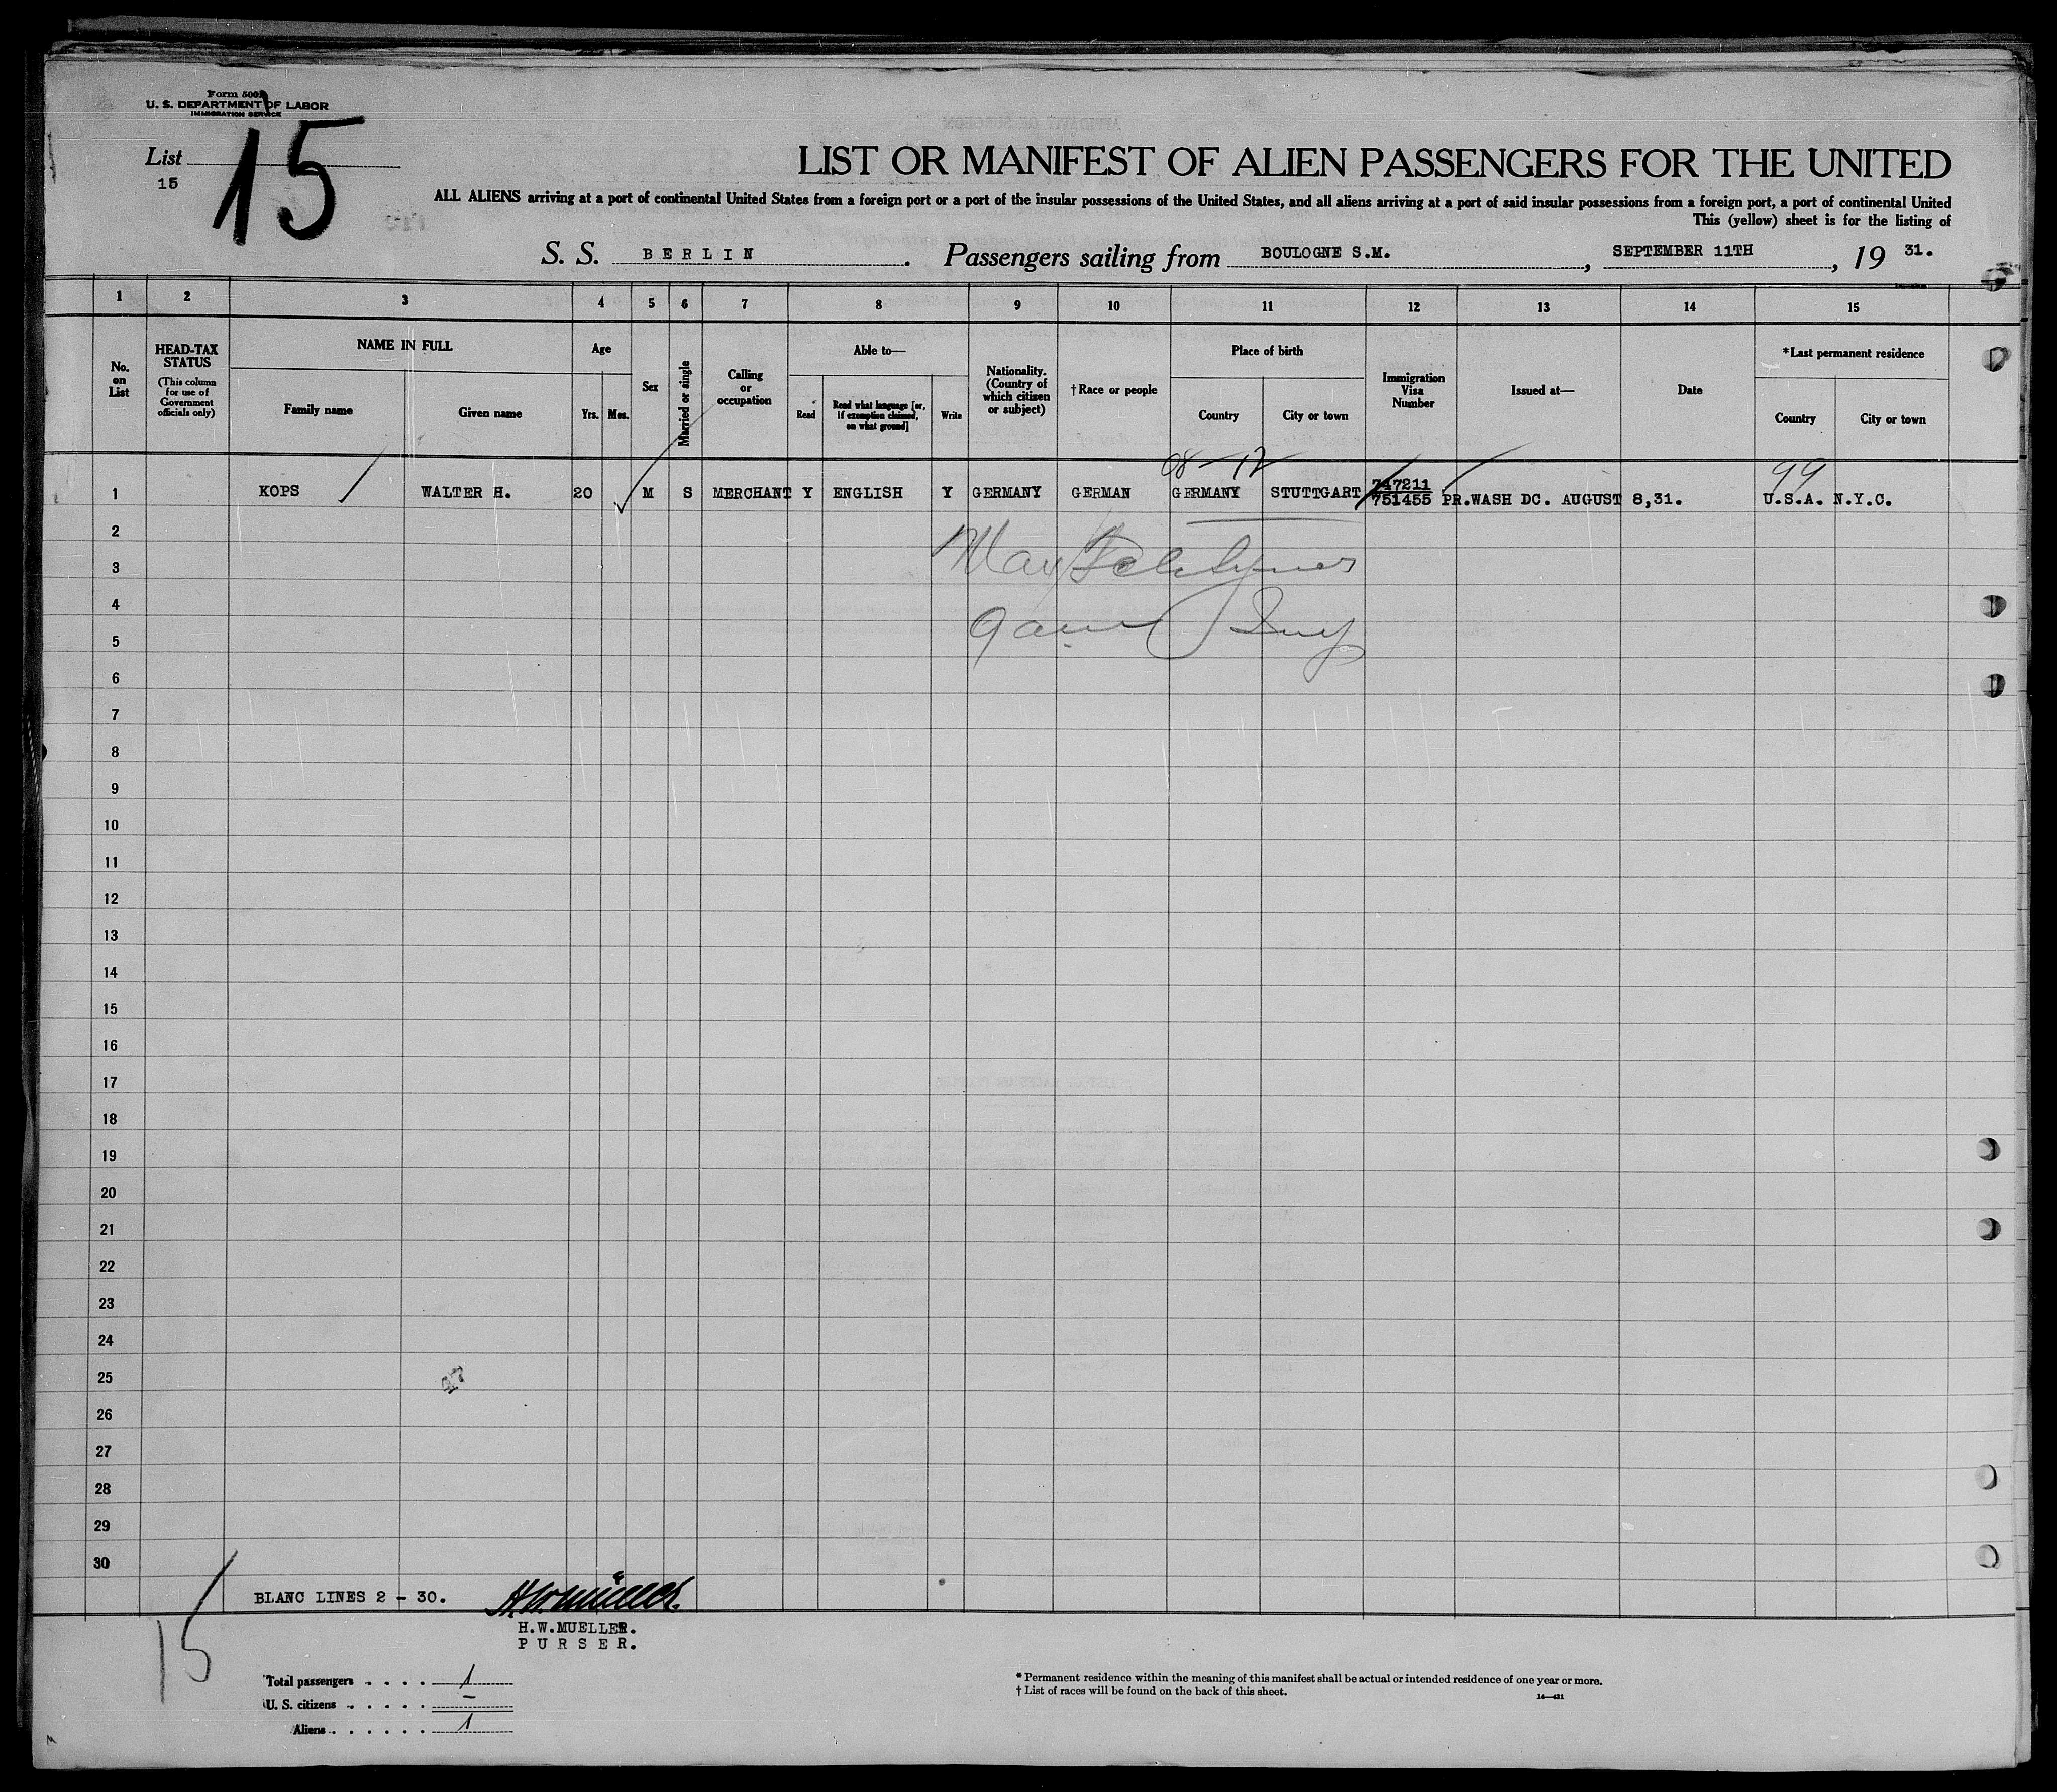 Form 500
U. S. DEPARTMENT OF LABOR
IMMIGRATION SERVICE
List 15
15
LIST OR MANIFEST OF ALIEN PASSENGERS FOR THE UNITED
ALL ALIENS arriving at a port of continental United States from a foreign port or a port of the insular possessions of the United States, and all aliens arriving at a port of said insular possessions from a foreign port, a port of continental United
This (yellow) sheet is for the listing of
S. S. BERLIN. Passengers sailing from BOULOGNE S.M., SEPTEMBER 11TH, 19 31.
1 2 3 4 5 6 7 8 9 10 11 12 13 14 15
No. on List
HEAD-TAX STATUS
(This column for use of Government officials only)
NAME IN FULL
Family name
Given name
Age
Yrs. Mos.
Sex
Married or single
Calling or occupation
Able to—
Read
Read what language [or, if exemption claimed, on what ground]
Write
Nationality. (Country of which citizen or subject)
†Race or people
Place of birth
Country
City or town
Immigration Visa Number
Issued at—
Date
*Last permanent residence
Country
City or town
08-12
99
1 KOPS WALTER H. 20 M S MERCHANT Y ENGLISH Y GERMANY GERMAN GERMANY STUTTGART 747211 751455 PR.WASH DC. AUGUST 8,31. U.S.A. N.Y.C.
2
3
4
5
6
7
8
9
10
11
12
13
14
15
16
17
18
19
20
21
22
23
24
25
26
27
28
29
30
BLANC LINES 2 - 30.
H.W. Mueller.
H.W.MUELLER.
PURSER.
15
Total passengers . . . . 1
U. S. citizens . . . . . —
Aliens . . . . . . 1
* Permanent residence within the meaning of this manifest shall be actual or intended residence of one year or more.
† List of races will be found on the back of this sheet.
14—431